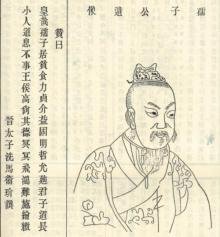 孺子公遺像
贊曰
孺子居貧食力貞介益固明哲允君子道長
小人道息不事王侯高尚其德冥冥飛鴻難施繳
晉太子洗馬衛玠